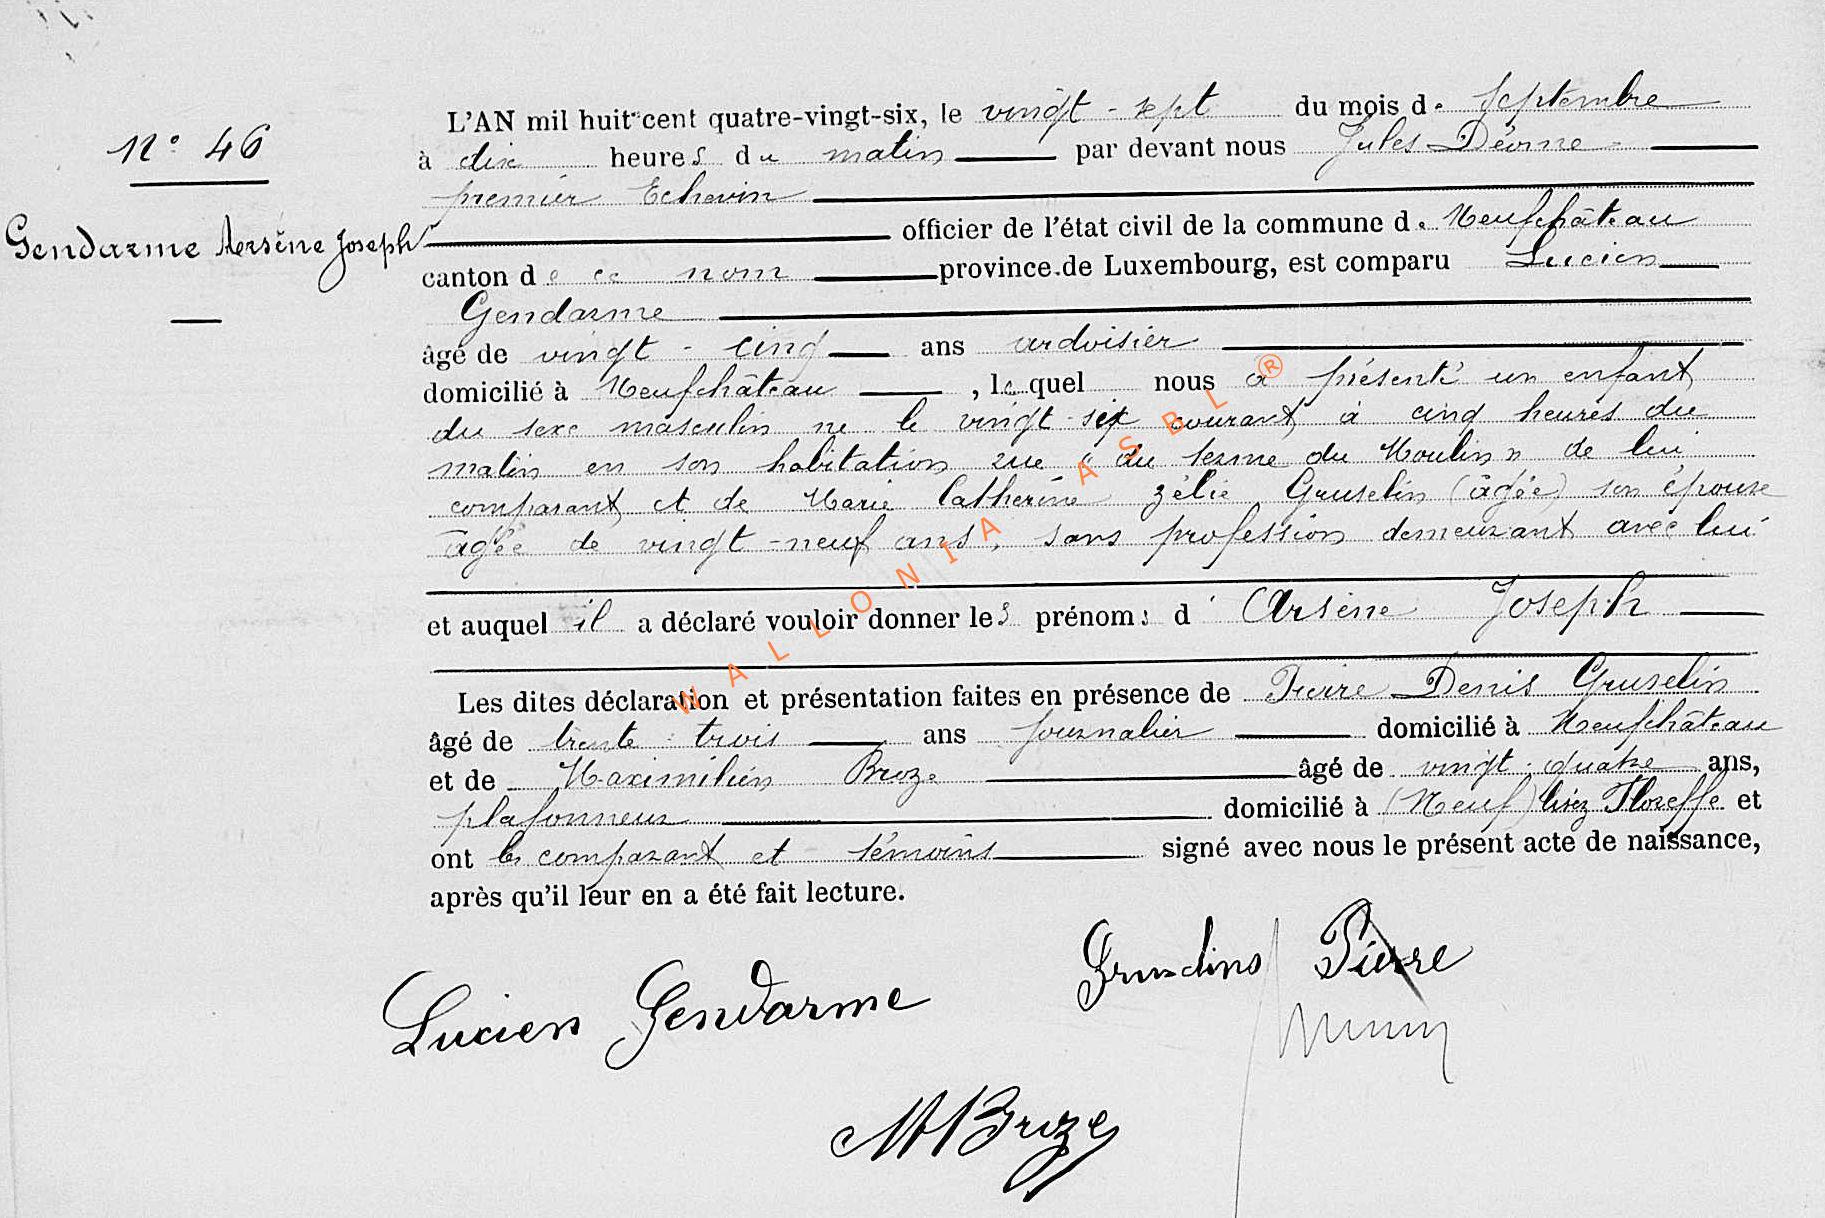 N° 46
Gendarme Arsène Joseph
L'AN mil huit cent quatre-vingt-six, le vingt-sept du mois de Septembre
à dix heures du matin par devant nous Jules
premier Echevin
officier de l'état civil de la commune de Neufchâteau
canton de ce nom province de Luxembourg, est comparu Lucien
Gendarme
âgé de vingt-cinq ans ardoisier
domicilié à Neufchâteau, lequel nous a présenté un enfant
du sexe masculin né le vingt-six courant à cinq heures du
matin en son habitation rue "du terme du Moulin" de lui
comparant et de Marie Catherine Zélie Gruselin (âgée) son épouse
âgée de vingt-neuf ans, sans profession demeurant avec lui
et auquel il a déclaré vouloir donner les prénoms d'Arsène Joseph
Les dites déclaration et présentation faites en présence de Pierre Denis Gruselin
âgé de trente-trois ans journalier domicilié à Neufchâteau
et de Maximilien Broze âgé de vingt-quatre ans,
plafonneur domicilié à (Neuf) lisez Floreffe et
ont les comparant et témoins signé avec nous le présent acte de naissance,
après qu'il leur en a été fait lecture.
Lucien Gendarme
Pierre
WALLONIA ASBL ®